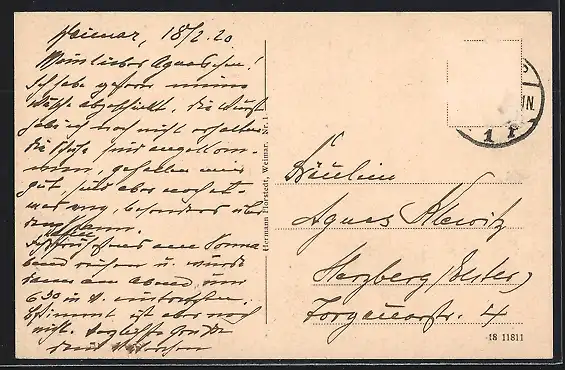 Weimar, 18/2.20
Mein liebes Agneschen!
Ich habe gestern meine
Wäsche abgeschickt, die Wurst
hab ich noch nicht erhalten
die Schuhe sind angekom-
men, gefallen mir
gut, sind aber noch et-
was eng, besonders über
den
am Sonna-
bend reisen u. würde
dann am Abend um
6 30 in H. eintreffen.
Bestimmt ist aber noch
nicht. Herzlichste Grüße
dein
Hermann Horstedt, Weimar. Nr. 1
Fräulein
Agnes Klewitz
Herzberg (Elster)
Torgauerstr. 4
18 11811